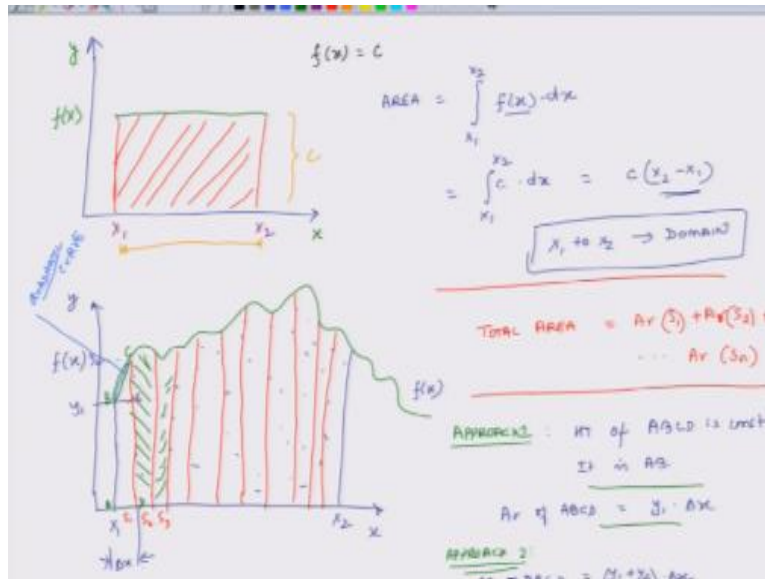 y
f(x) = C
f(x)
C
x₁
x₂
x
AREA = ∫ f(x)·dx
x₂
x₁
= ∫ C·dx = C(x₂-x₁)
x₂
x₁
x₁ to x₂ → DOMAIN
CURVE
y
f(x)
y₁
f(x)
x₁
S₁ S₂ S₃
x₂
x
Δx
TOTAL AREA = Ar(S₁) + Ar(S₂) +
... Ar(Sn)
APPROACH 1 : HT of ABCD is const
It is AB
Ar of ABCD = y₁·Δx
APPROACH 2:
ABCD = (y₁+y₂)·Δx